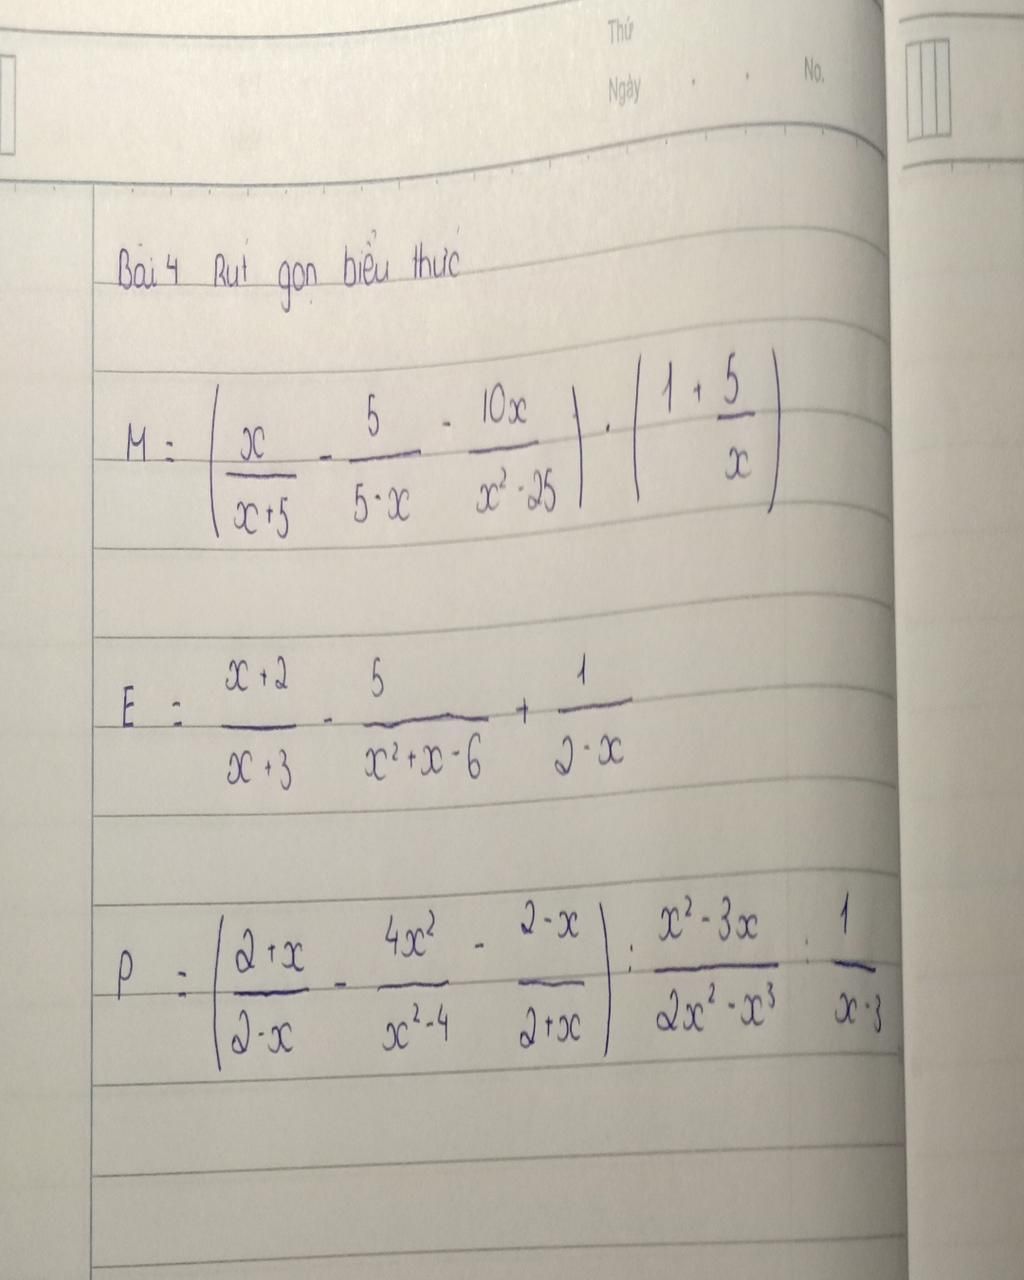 Thứ
Ngày . . No.
Bài 4 Rút gọn biểu thức
M = (x/(x+5) - 5/(5-x) - 10x/(x²-25)) . (1 + 5/x)
E = (x+2)/(x+3) - 5/(x²+x-6) + 1/(2-x)
P = ((2+x)/(2-x) - 4x²/(x²-4) - (2-x)/(2+x)) : (x²-3x)/(2x²-x³) : 1/(x-3)